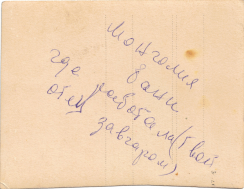 Монголия
зaши..
где работала (твой
отец завгаром).